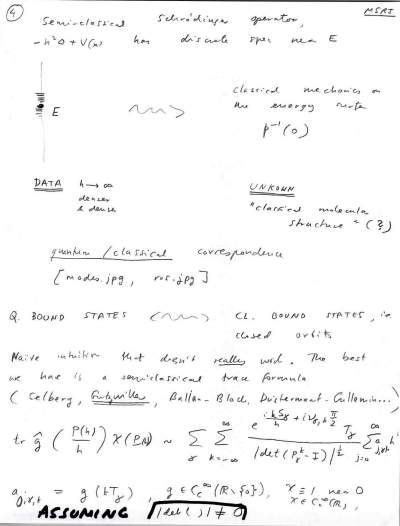 ④ MSRI
Semi-classical Schrödinger operator,
-h²Δ + V(x) has discrete spec near E
E
classical mechanics on
the energy surface
p⁻¹(0)
DATA h → ∞
denser
& dense
UNKOWN
"classical molecular
structure" (?)
quantum / classical correspondence
[modes.jpg, ros.jpg]
Q. BOUND STATES CL. BOUND STATES, i.e.
closed orbits
Naive intuition that doesn't really work. The best
we have is a semiclassical trace formula
(Selberg, Gutzwiller, Balian-Bloch, Duistermaat-Guillemin...)
tr ĝ (P(h)/h) χ(P(h)) ~ Σ_γ Σ_{k=-∞}^{∞} e^{ikS_γ/h + iν_{γ,k} π/2} T_γ / |det(P_γ^k - I)|^{1/2} Σ_{j=0}^{∞} a_{j,γ,k} h^j
a_{0,γ,k} = g(kT_γ), g ∈ C_c^∞(ℝ\{0}), χ ≡ 1 near 0
χ ∈ C_c^∞(ℝ),
ASSUMING |det( )| ≠ 0